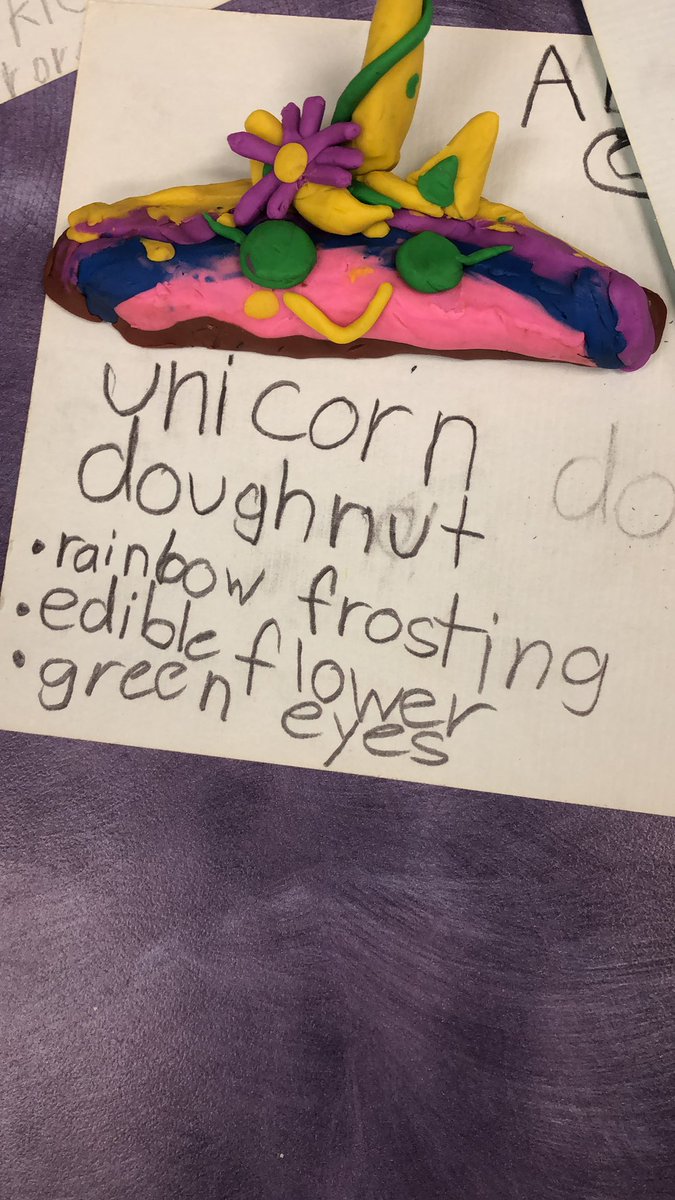 unicorn
doughnut
• rainbow frosting
• edible flower
• green eyes
do